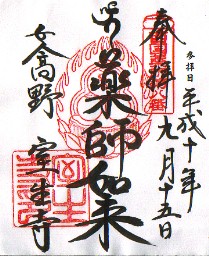 参拝日
平成十年
九月十五日
奉拝
薬師如来
女高野
室生寺